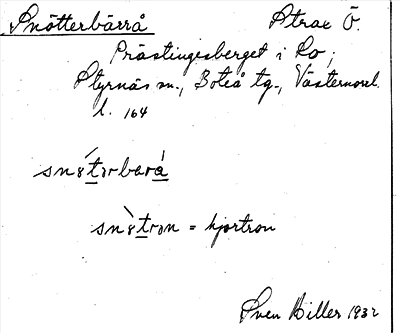 Snötterbärrå Strax Ö.
Prästingesberget i Ro;
Styrnäs sn., Boteå tg., Västernorrl.
l. 164
snötərbarå
snötron = hjortron
Sven Hiller 1932